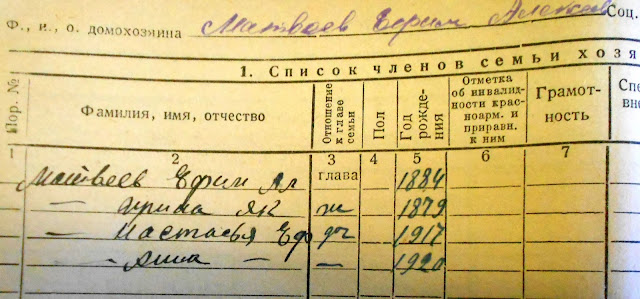 Ф., и., о. домохозяина Матвеев Ефим Алексеев Соц.
1. Список членов семьи хозя
Пор. № Фамилия, имя, отчество Отношение к главе семьи Пол Год рождения Отметка об инвалидности красноарм. и приравн. к ним Грамотность
1 2 3 4 5 6 7
Матвеев Ефим Ал глава 1884
— Ирина Як ж 1879
— Настасья Еф дч 1917
— Анна — — 1920